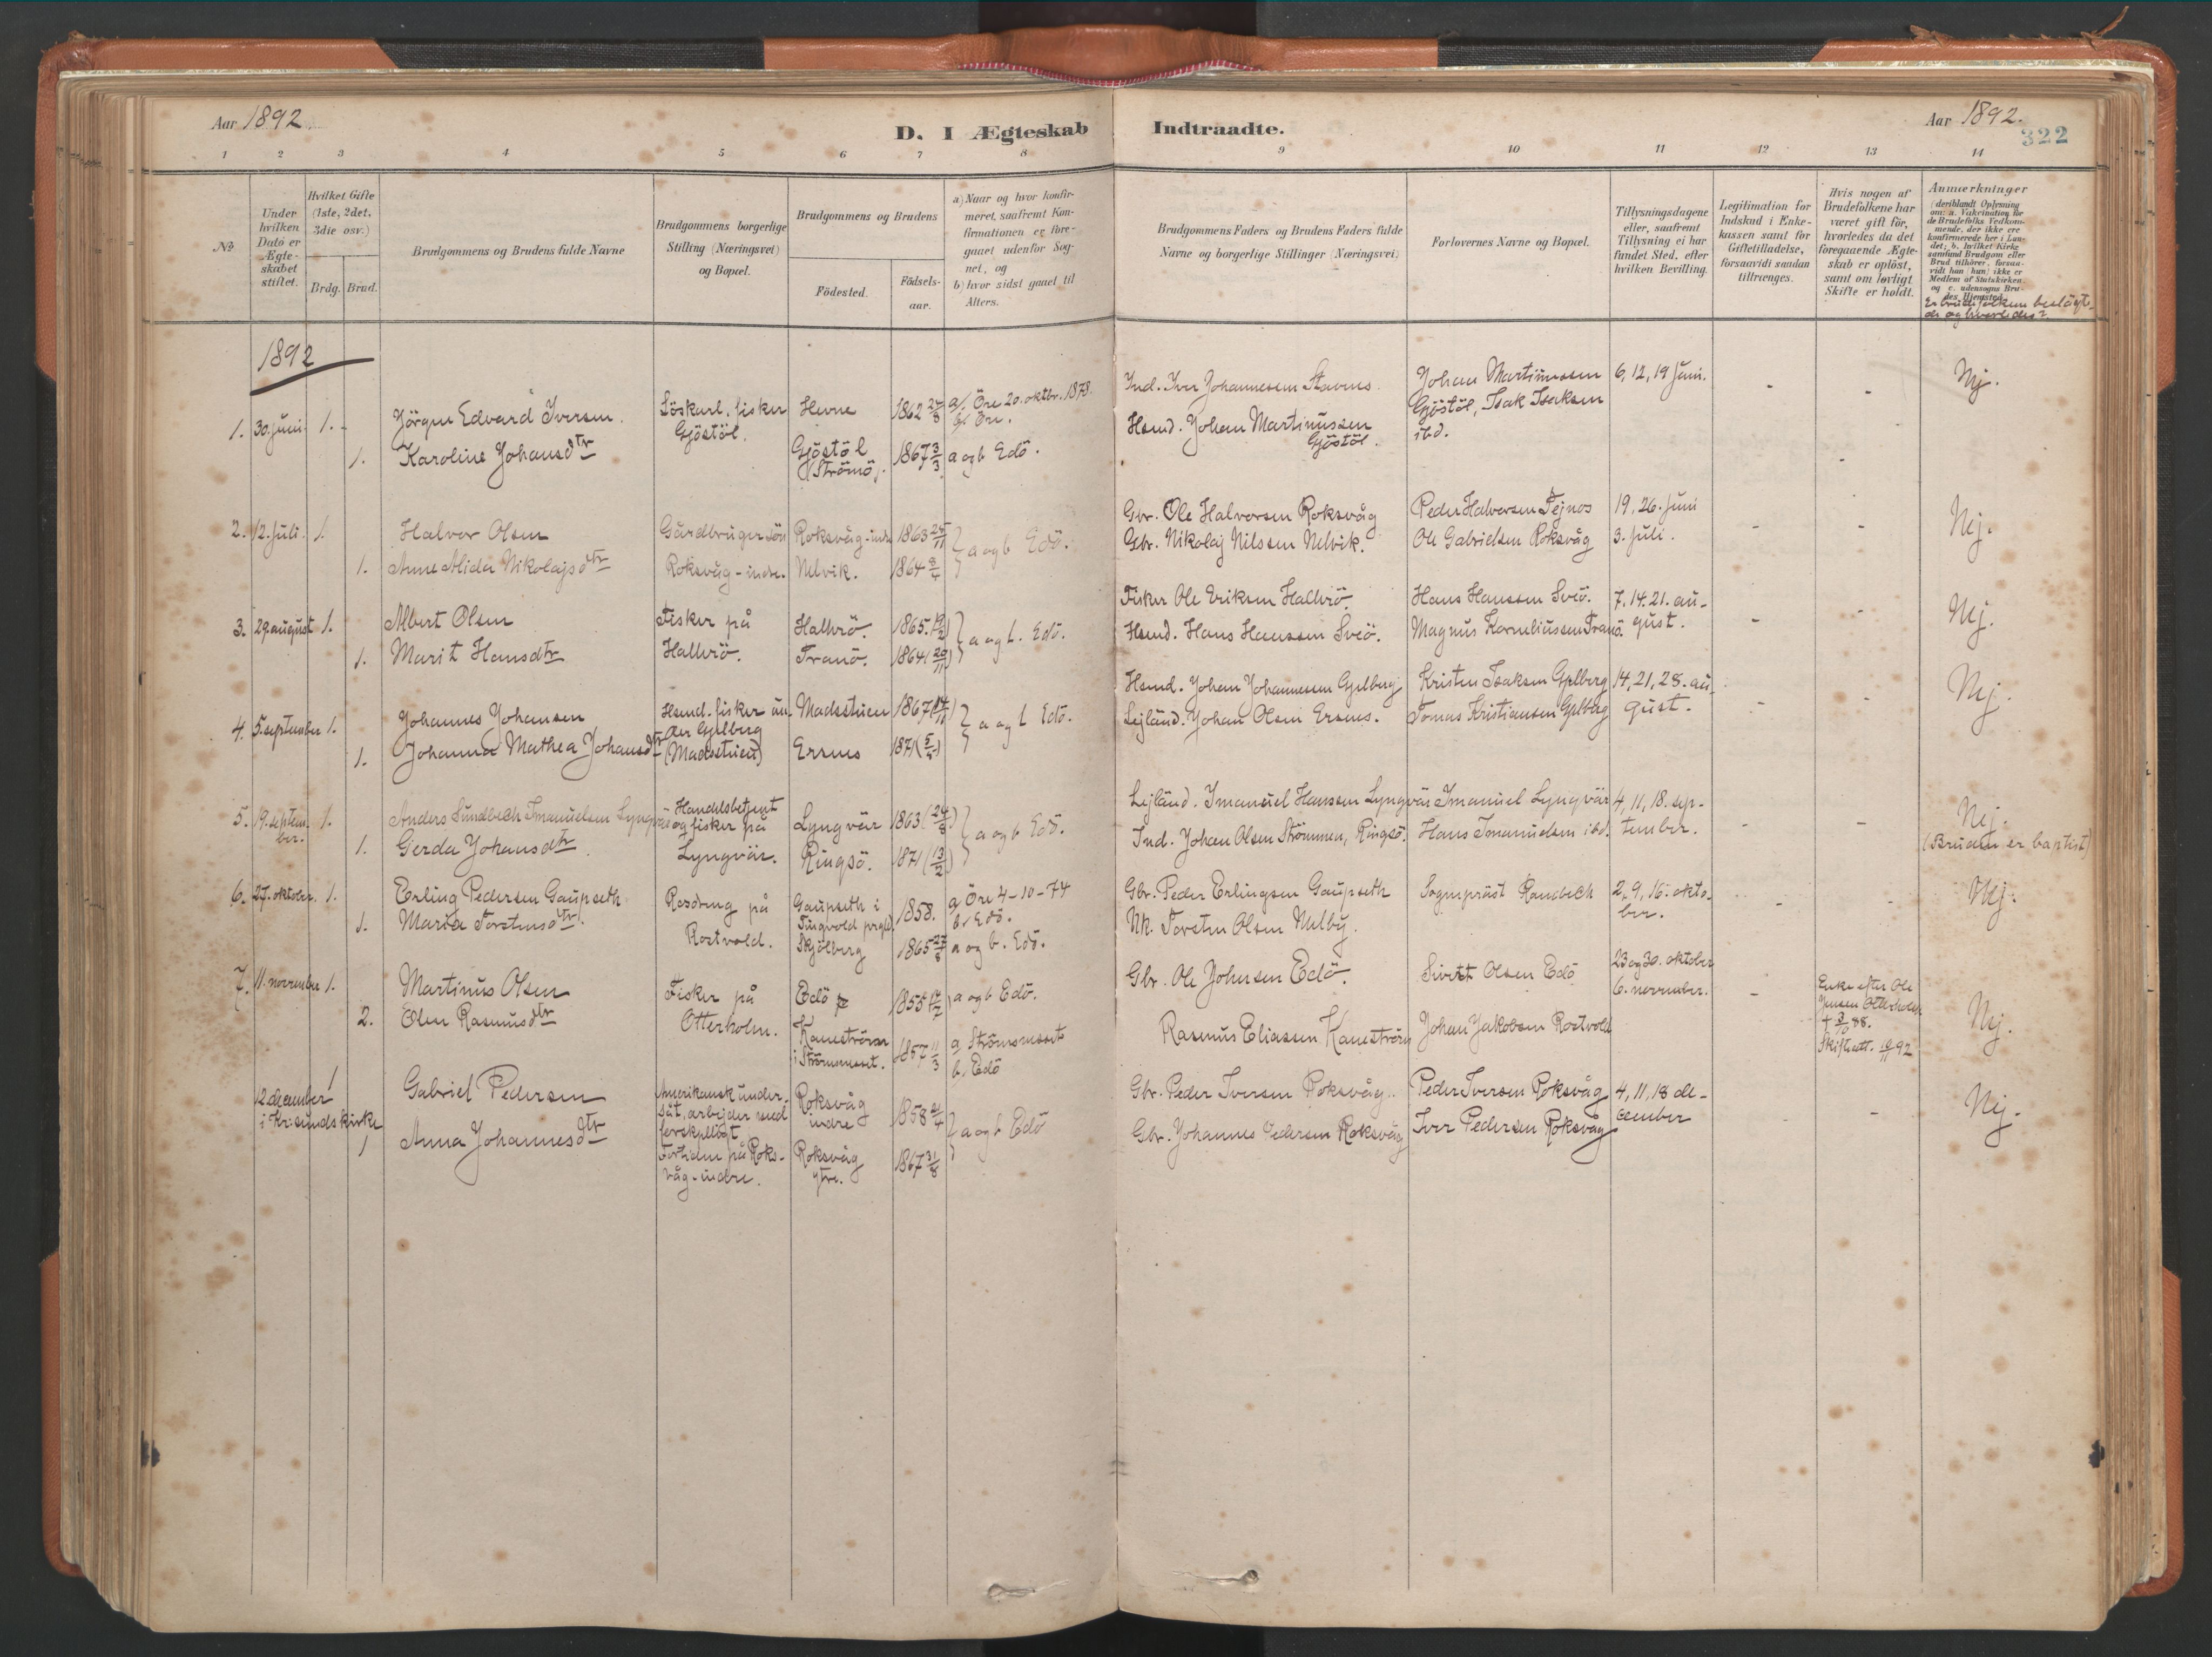 Aar 1892.
D. I Ægteskab
1 2 3 4 5 6 7 8
№
Under hvilken Dato er Ægteskabet stiftet.
Hvilket Gifte (1ste, 2det, 3die osv.)
Brdg. Brud.
Brudgommens og Brudens fulde Navne
Brudgommens borgerlige Stilling (Næringsvei) og Bopæl.
Brudgommens og Brudens
Födested.
Födselsaar.
a) Naar og hvor konfirmeret, saafremt Konfirmationen er foregaaet udenfor Sognet, og
b) hvor sidst gaaet til Alters.
1892
1. 30. juni 1. Jörgen Edvard Iversen. Söskarl, fisker Gjöstöl. Hevne 1862 24/8 a/ Öre 20. oktbr. 1878. b/ Öre.
1. Karoline Johansdtr Gjöstöl (Strömö). 1867 3/3 a og b Edö.
2. 12. juli. 1. Halvor Olsen Gårdbrugersön Roksvåg-indre 1863 25/11 } a og b Edö.
1. Anne Alida Nikolajsdtr Roksvåg-indre. Nelvik. 1864 8/4
3. 29. august 1. Albert Olsen Fisker på Hallvrö. 1865. } a og b. Edö.
1. Marit Hansdtr Hallvrö. Tranö. 1864 (20/11)
4. 5. september 1. Johannes Johansen Hsmd. fisker under Gjelberg Madsstuen 1867 } a og b Edö.
1. Johanna Mathea Johansdtr (Madsstuen) Ersnes 1871
5. 19. september. 1. Anders Sundbech Imanuelsen Lyngvär Handelsbetjent og fisker på Lyngvär 1863 (24/8) } a og b Edö.
1. Gerda Johansdtr. Lyngvär. Ringsö. 1871 (13/2)
6. 27. oktober. 1. Erling Pedersen Gaupseth Rosdreng på Gaupseth i Tingvold prgld. 1858. a/ Öre 4-10-74 b. Edö.
1. Maria Torstensdtr. Rostvold. Skjölberg 1865 a og b. Edö.
7. 11. november 1. Martinus Olsen Fisker på Edö 1855 a og b Edö.
2. Olen Rasmusdtr Otterholm. Kaneström i Strömsneset. 1857 11/3 a. Strömsneset b, Edö
12. december i Kr.sunds kirke 1 Gabriel Pedersen Amerikansk undersåt, arbejder med forskjelligt Roksvåg indre 1858 } a og b Edö
1 Anna Johannesdtr Fortiden på Roksvåg-indre. Roksvåg ytre. 1867 31/8
Indtraadte.
Aar 1892.
322
9 10 11 12 13 14
Brudgommens Faders og Brudens Faders fulde Navne og borgerlige Stillinger (Næringsvei)
Forlovernes Navne og Bopæl.
Tillysningsdagene eller, saafremt Tillysning ei har fundet Sted, efter hvilken Bevilling.
Legitimation for Indskud i Enkekassen samt for Giftetilladelse, forsaavidt saadan tiltrænges.
Hvis nogen af Brudefolkene har været gift för, hvorledes da det foregaaende Ægteskab er oplöst, samt om lovligt Skifte er holdt.
Anmærkninger (deriblandt Oplysning om: a. Vakcination for de Brudefolks Vedkommende, der ikke ere konfirmerede her i Landet; b. hvilket Kirkesamfund Brudgom eller Brud tilhörer, forsaavidt han (hun) ikke er Medlem af Statskirken og c. udensogns Brudes Hjemsted.
Er brudefolkene beslägtede og hvorledes?
Ind. Iver Johannesen Stavnes. Johan Martinussen Gjöstöl, Isak Isaksen ibd. 6, 12, 19 juni. - - Nej.
Hsmd. Johan Martinussen Gjöstöl. -
Gbr. Ole Halvorsen Roksvåg Peder Halvorsen Tejnos 19, 26. juni - - Nej.
Gbr. Nikolaj Nilssen Nelvik. Ole Gabrielsen Roksvåg 3. juli.
Fisker Ole Eriksen Hallvrö. Hans Hanssen Sveö. 7. 14. 21. august. - - Nej.
Hsmd. Hans Hanssen Sveö. Magnus Korneliussen Tranö.
Hsmd. Johan Johannesen Gjelberg Kristen Isaksen Gjelberg 14, 21, 28. august. - - Nej
Lejländ. Johan Olsen Ersnes. Tomas Kristiansen Gjelberg
Lejländ. Imanuel Hanssen Lyngvär Imanuel Lyngvär 4, 11, 18. september. - - Nej.
Ind. Johan Olsen Strömmen, Ringsö. Hans Imanuelsen ibd. (Bruden er baptist)
Gbr. Peder Erlingsen Gaupseth Sognepräst Randbech 2, 9, 16. oktober. - - Nej.
Nk. Torsten Olsen Melby.
Gbr. Ole Johnsen Edö. Sivert Olsen Edö 23 og 30. oktober 6. november. - Enke efter Ole Jensen Otterholm + 3/10 88. Skifteatt. 10/11 92 Nej.
Rasmus Eliassen Kaneström Johan Jakobsen Rostvold
Gbr. Peder Iversen Roksvåg. Peder Iversen Roksvåg 4, 11, 18 december - Nej.
Gbr. Johannes Pedersen Roksvåg Iver Pedersen Roksvåg